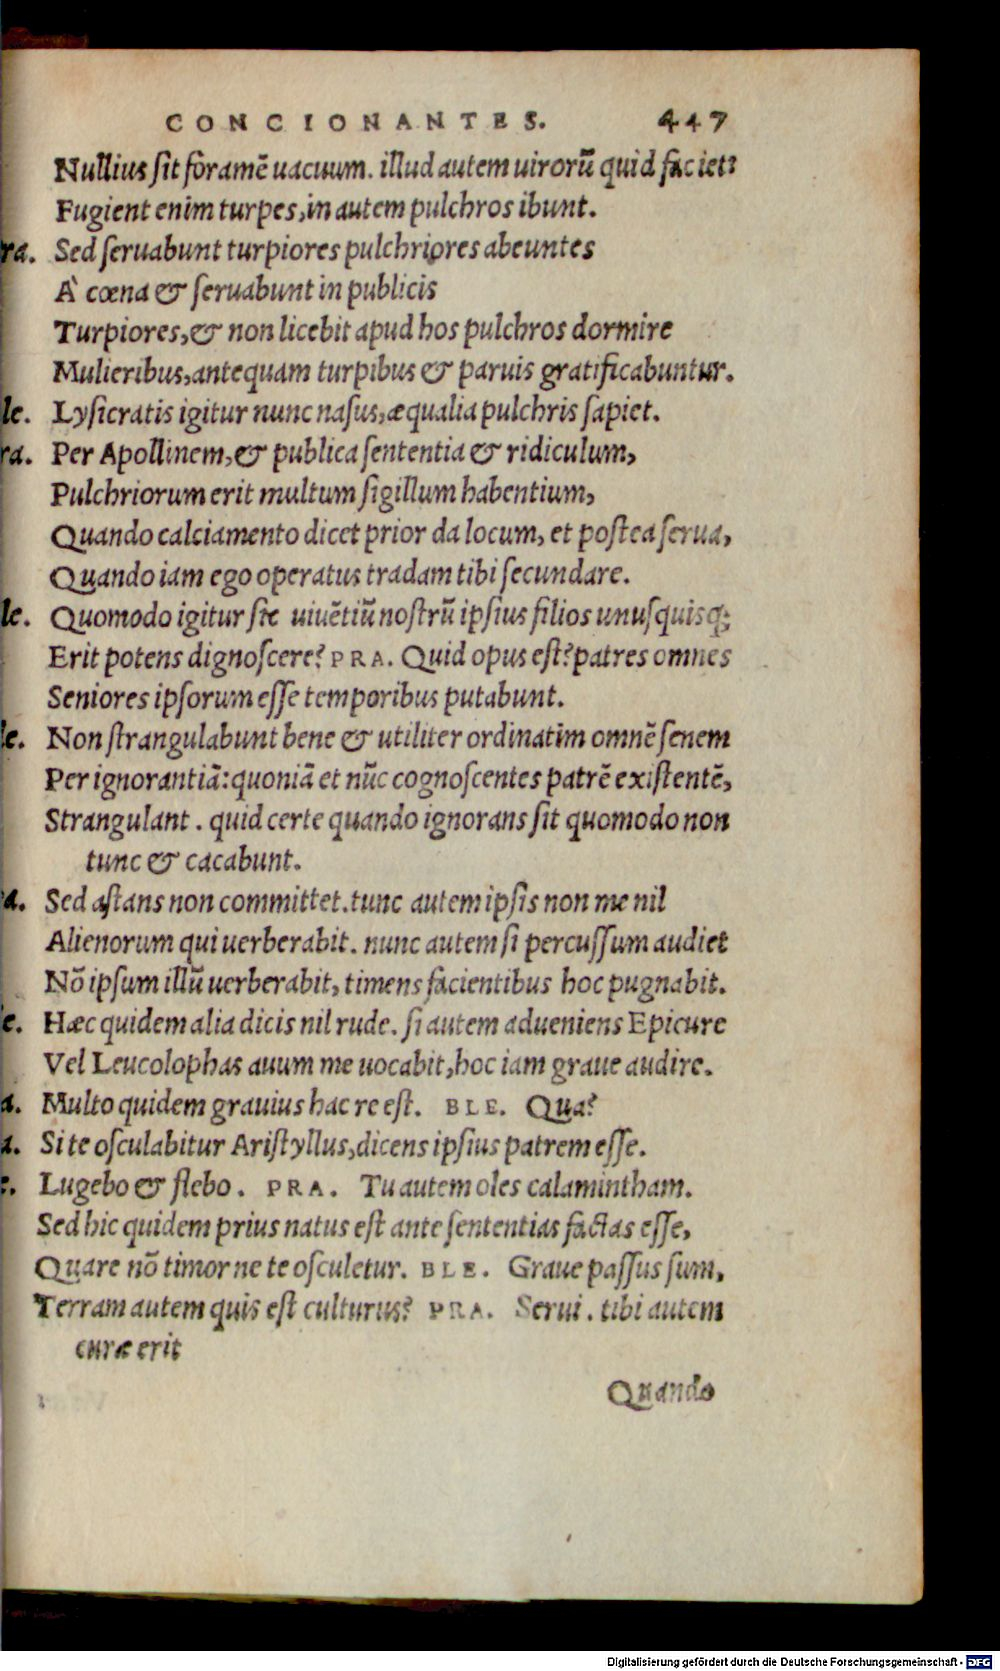 CONCIONANTES. 447
Nullius sit foramē uacuum. illud autem uirorū quid faciet?
Fugient enim turpes, in autem pulchros ibunt.
ra. Sed seruabunt turpiores pulchriores abeuntes
A' cœna & seruabunt in publicis
Turpiores, & non licebit apud hos pulchros dormire
Mulieribus, antequam turpibus & paruis gratificabuntur.
le. Lysicratis igitur nunc nasus, æqualia pulchris sapiet.
ra. Per Apollinem, & publica sententia & ridiculum,
Pulchriorum erit multum sigillum habentium,
Quando calciamento dicet prior da locum, et postea serua,
Quando iam ego operatus tradam tibi secundare.
le. Quomodo igitur sic uiuētiū nostrū ipsius filios unusquisq;
Erit potens dignoscere? PRA. Quid opus est? patres omnes
Seniores ipsorum esse temporibus putabunt.
le. Non strangulabunt bene & utiliter ordinatim omnē senem
Per ignorantiā: quoniā et nūc cognoscentes patrē existentē,
Strangulant. quid certe quando ignorans sit quomodo non
tunc & cacabunt.
a. Sed astans non committet. tunc autem ipsis non me nil
Alienorum qui uerberabit. nunc autem si percussum audiet
Nō ipsum illū uerberabit, timens facientibus hoc pugnabit.
e. Hæc quidem alia dicis nil rude. si autem adueniens Epicure
Vel Leucolophas auum me uocabit, hoc iam graue audire.
a. Multo quidem grauius hac re est. BLE. Qua?
a. Si te osculabitur Aristyllus, dicens ipsius patrem esse.
e. Lugebo & flebo. PRA. Tu autem oles calamintham.
Sed hic quidem prius natus est ante sententias factas esse,
Quare nō timor ne te osculetur. BLE. Graue passus sum,
Terram autem quis est culturus? PRA. Serui. tibi autem
curæ erit
Quando
Digitalisierung gefördert durch die Deutsche Forschungsgemeinschaft - DFG